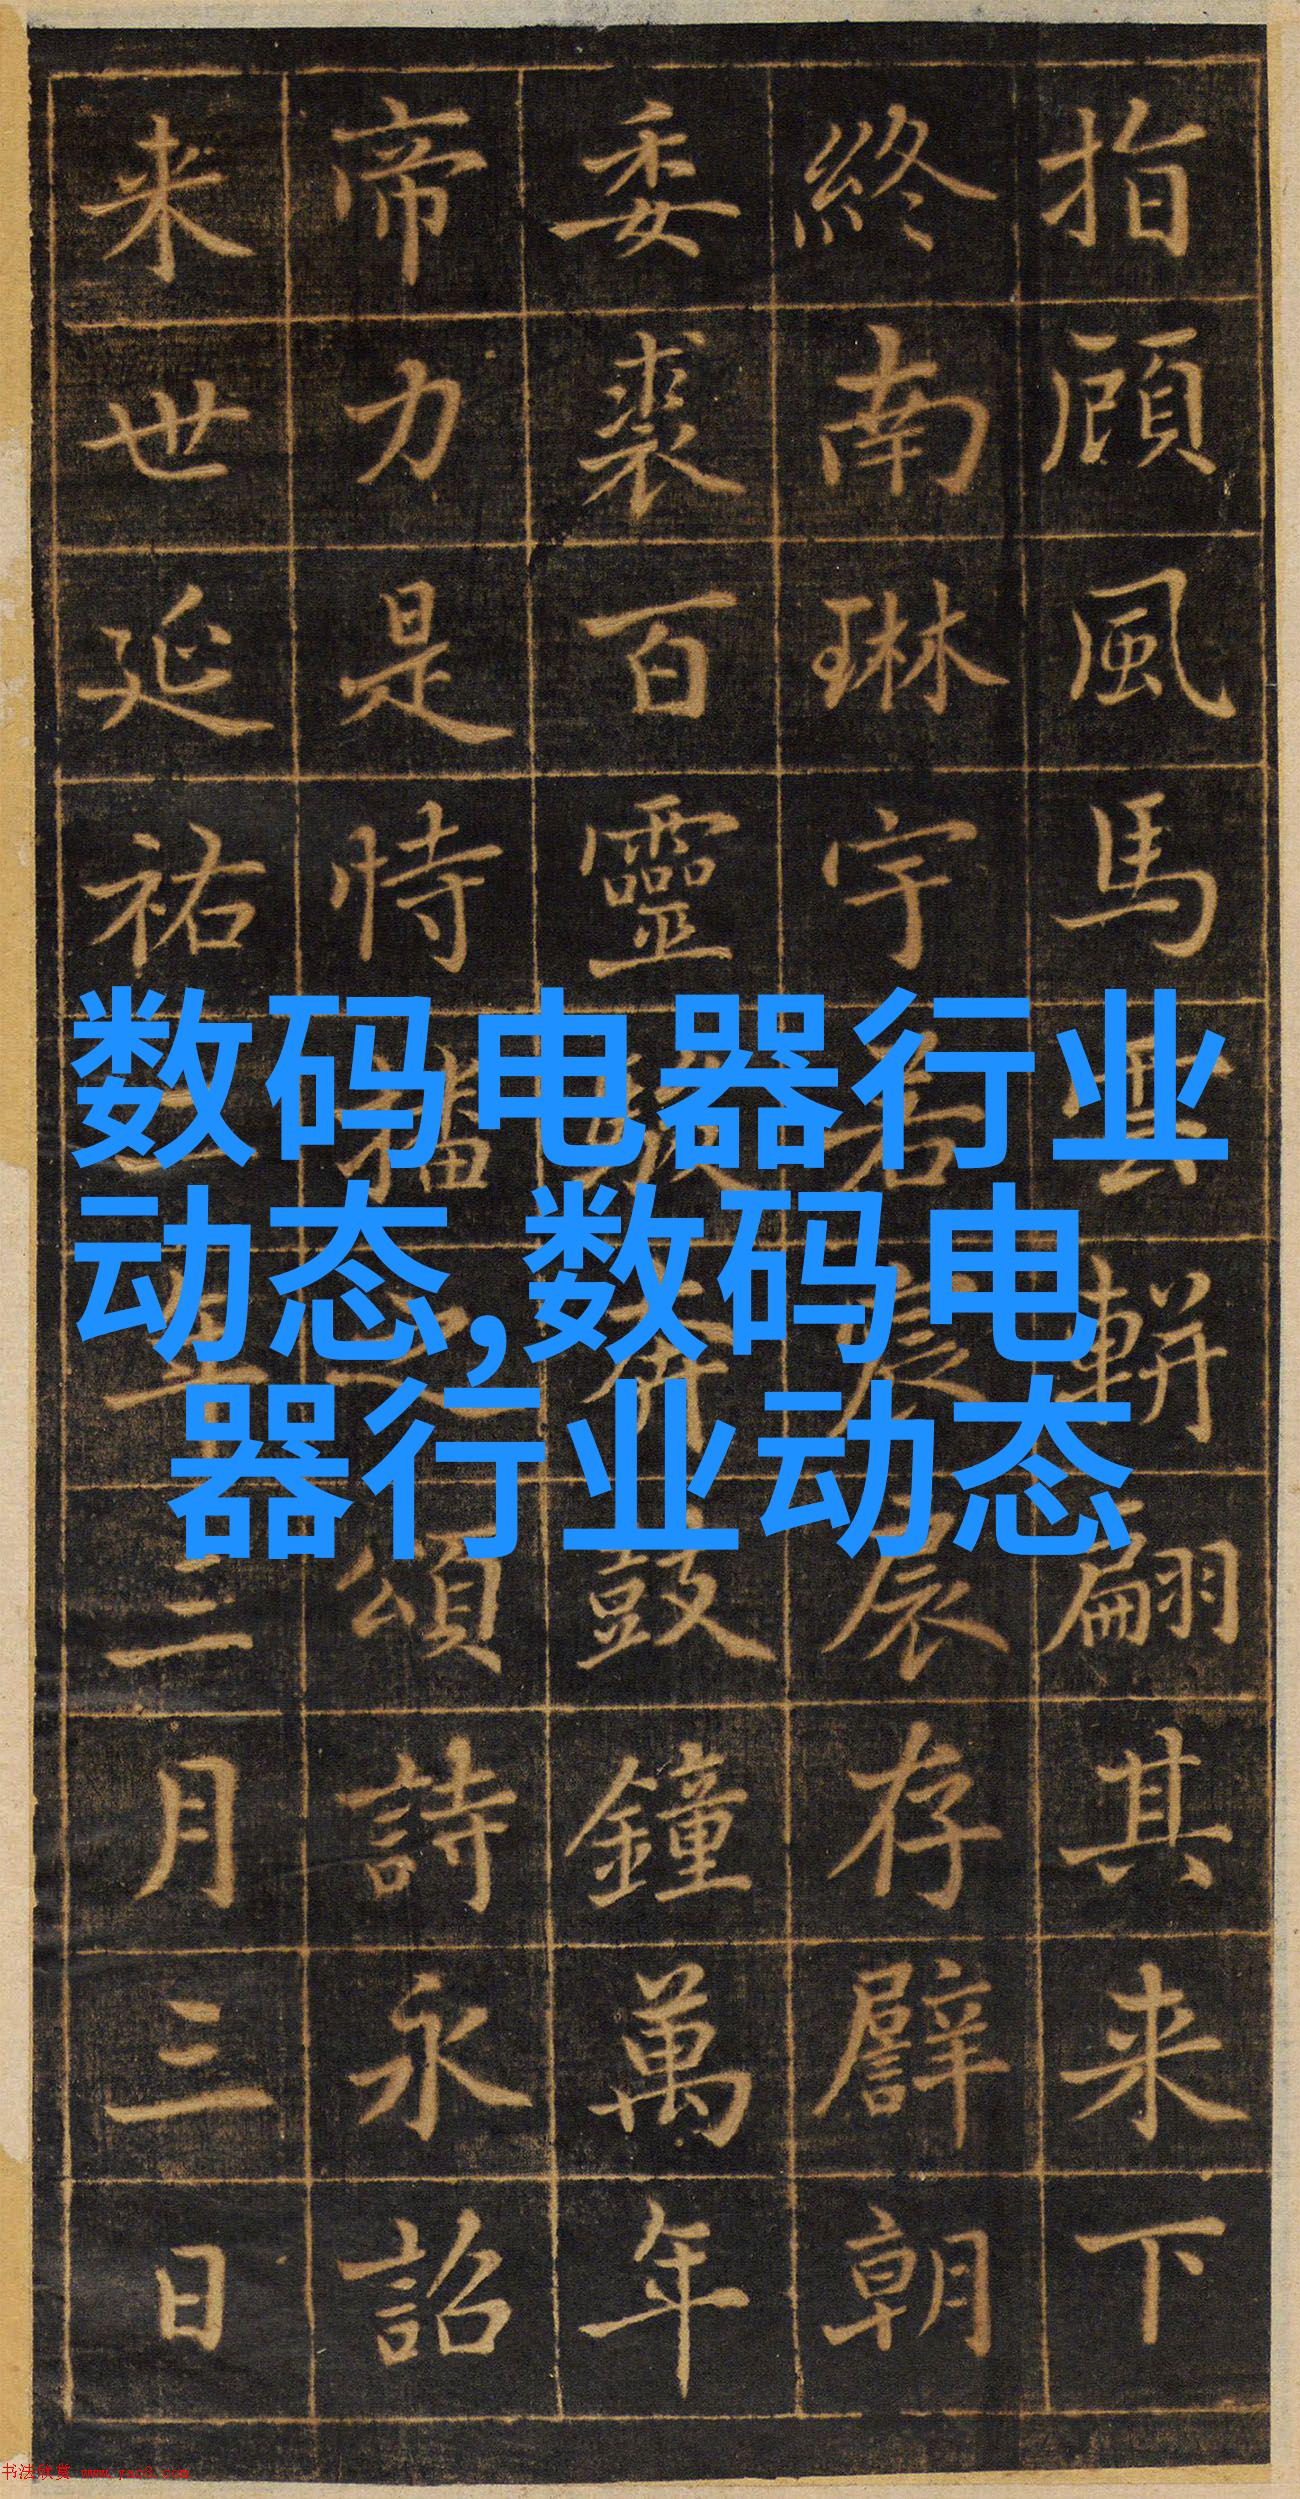 指顧風馬雲軿翩其来下
終南琳宇若扆存譬朝
委裘百靈駿奔鼓鐘萬年
帝力是恃播之頌詩永詔
来世延祐年三月三日
数码电器行业
动态,数码电
器行业动态
书法欣赏 www.yac8.com